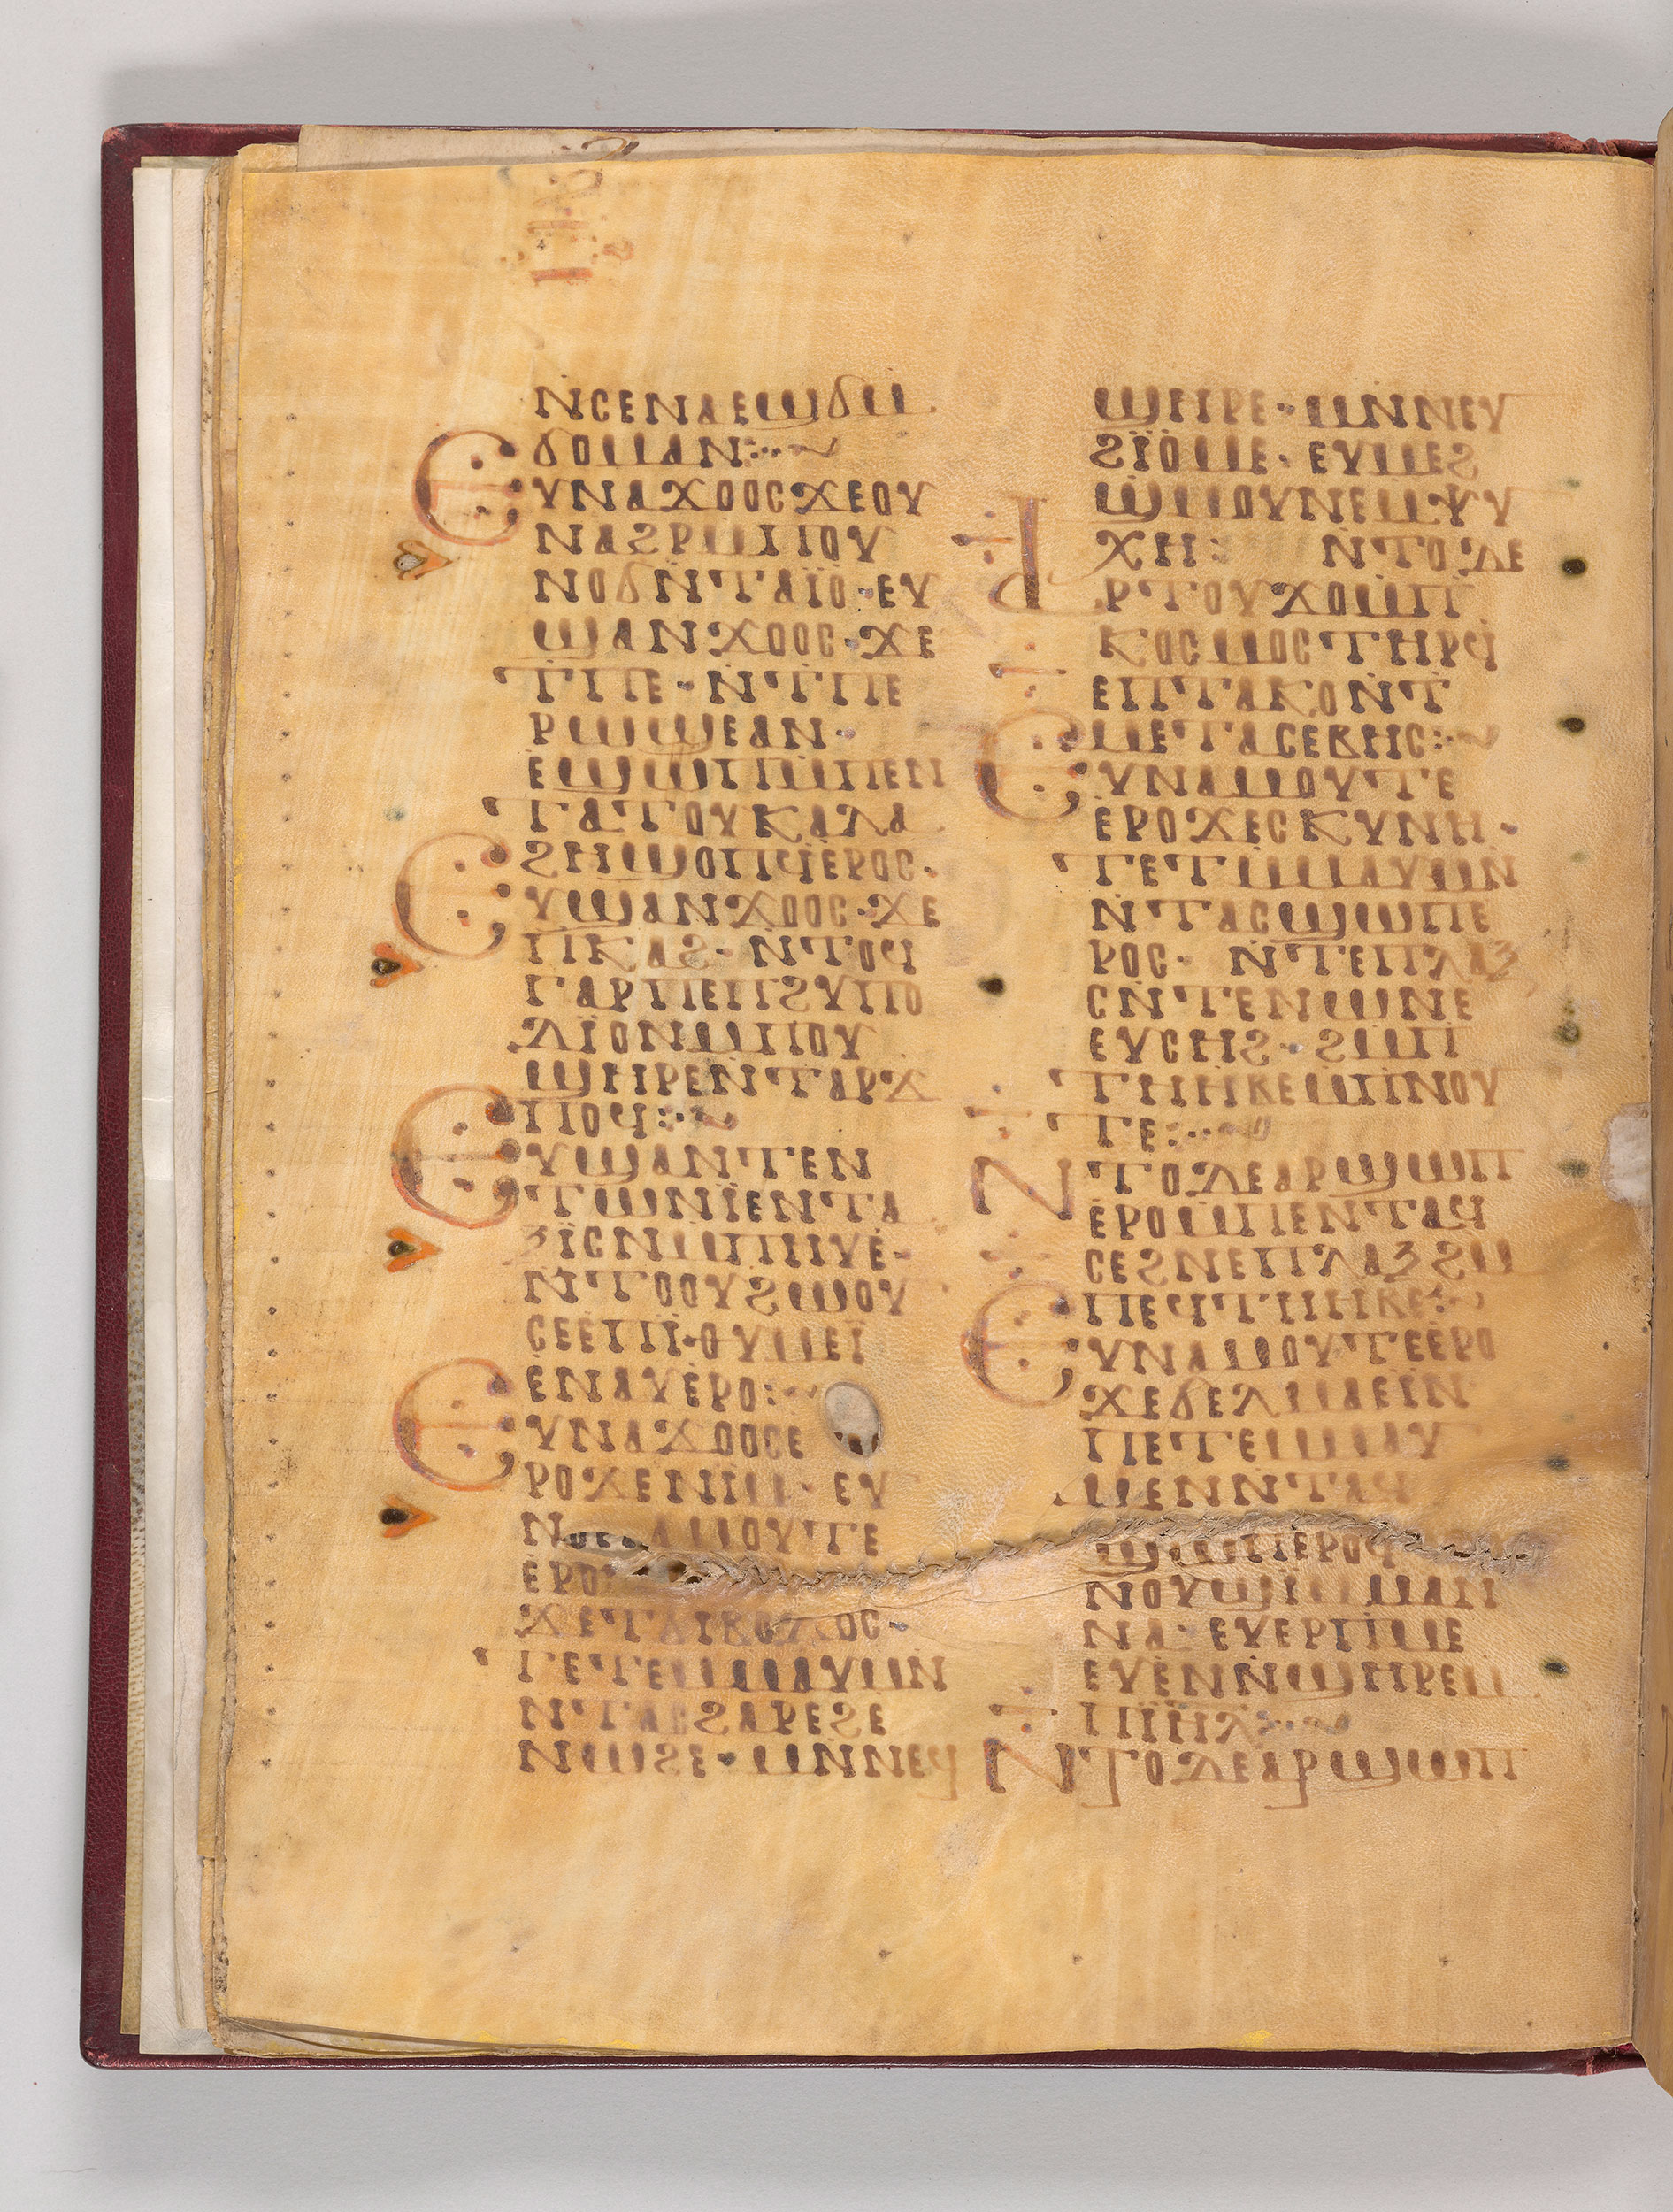 ⲛ̇ⲥⲉⲛⲁⲉϣϭⲙ̇
ϭⲟⲙⲁⲛ:··~
ⲉⲩⲛⲁϫⲟⲟⲥϫⲉⲟⲩ
ⲛⲁϩⲣⲙ̇ⲡⲟⲩ
ⲛⲟϭⲛ̇ⲧⲁⲓ̈ⲟ·ⲉⲩ
ϣⲁⲛϫⲟⲟⲥ·ϫⲉ
ⲧⲡⲉ·ⲛ̇ⲧⲡⲉ
ⲣⲱϣⲉⲁⲛ·
ⲉϣⲱⲡⲙ̇ⲡⲉⲛ
ⲧⲁⲧⲟⲩⲕⲁⲗⲁ
ϩⲏϣⲟⲡϥ̇ⲉⲣⲟⲥ·
ⲉⲩϣⲁⲛϫⲟⲟⲥ·ϫⲉ
ⲡⲕⲁϩ·ⲛ̇ⲧⲟϥ
ⲅⲁⲣⲡⲉⲡϩⲩⲡⲟ
ⲇⲓ̈ⲟⲛⲙ̇ⲡⲟⲩ
ϣⲏⲣⲉⲛ̇ⲧⲁⲣⲭ
ⲡⲟϥ:··~
ⲉⲩϣⲁⲛⲧⲉⲛ
ⲧⲱⲛⲓ̈ⲉⲛⲧⲁ
ⲝⲓ̈ⲥⲛⲙ̇ⲡⲏⲩⲉ̇·
ⲛ̇ⲧⲟⲟⲩϩⲱⲟⲩ
ⲥⲉⲉⲓⲡⲓ̈·ⲑⲩⲙⲉⲓ̈
ⲉⲛⲁⲩⲉ̇ⲣⲟ:·~
ⲉⲩⲛⲁϫⲟⲟⲥⲉ
ⲣⲟϫⲉⲛⲓⲙ·ⲉⲩ
ⲙⲟⲩⲧⲉ
ⲉ̇ⲣⲟ:
ϫⲉⲧⲁⲓⲃⲟⲗⲟⲥ·
ⲧⲉⲧⲉⲙⲙⲁⲩⲙⲛ
ⲛ̇ⲧⲁⲥϩⲁⲣⲉϩⲉ
ⲛⲱϩⲉ·ⲙⲛⲛⲉϥ
ϣⲏⲣⲉ·ⲙⲛⲛⲉⲩ
ϩⲓ̈ⲟⲙⲉ·ⲉⲩⲙⲉϩ
ϣⲙⲟⲩⲛⲉⲙ̇ⲯⲩ
ⲭⲏ: ⲛ̇ⲧⲟⲇⲉ
ⲁⲣⲧⲟⲩϫⲟⲙ̇ⲡ
ⲕⲟⲥⲙⲟⲥⲧⲏⲣϥ
ⲉⲡⲧⲁⲕⲟⲛ̇ⲧ
ⲙⲉⲧⲁⲥⲉⲃⲏⲥ:·~
ⲉⲩⲛⲁⲙⲟⲩⲧⲉ
ⲉ̇ⲣⲟϫⲉⲥⲕⲩⲛⲏ·
ⲧⲉⲧⲙ̇ⲙⲁⲩⲙⲛ
ⲛ̇ⲧⲁⲥϣⲱⲡⲉ
ⲣⲟⲥ· ⲛ̇ⲧⲉⲡⲗⲁⲝ
ⲥⲛ̇ⲧⲉⲛⲱⲛⲉ
ⲉⲩⲥⲏϩ·ϩⲙ̇ⲡ
ⲧⲏⲏⲃⲉⲙ̇ⲡⲛⲟⲩ
ⲧⲉ:··~
ⲛⲧⲟⲇⲉⲁⲣϣⲱⲡ
ⲉ̇ⲣⲟⲙ̇ⲡⲉⲛⲧⲁϥ
ⲥⲉϩⲛⲉⲡⲗⲁⲝϩⲙ
ⲡⲉϥⲧⲏⲏⲃⲉ:·~
ⲉⲩⲛⲁⲙⲟⲩⲧⲉⲉ̇ⲣⲟ
ϫⲉϭⲉⲗⲙⲁⲉⲓ̈ⲛ
ⲡⲉⲧⲉⲙⲙⲁⲩ
ⲙⲉⲛⲛ̇ⲧⲁϥ
ϣⲱⲡⲉⲣⲟϥ
ⲛⲟⲩϣⲓ̈ⲙ̇ⲙⲁⲛ
ⲛⲁ·ⲉⲩⲉⲣⲡⲙ̇ⲉ
ⲉⲩⲉ̇ⲛⲛ̇ϣⲏⲣⲉⲙ̇
ⲡⲓ̈ⲏⲗ:··~
ⲛⲧⲟⲇⲉⲁⲣϣⲱⲡ